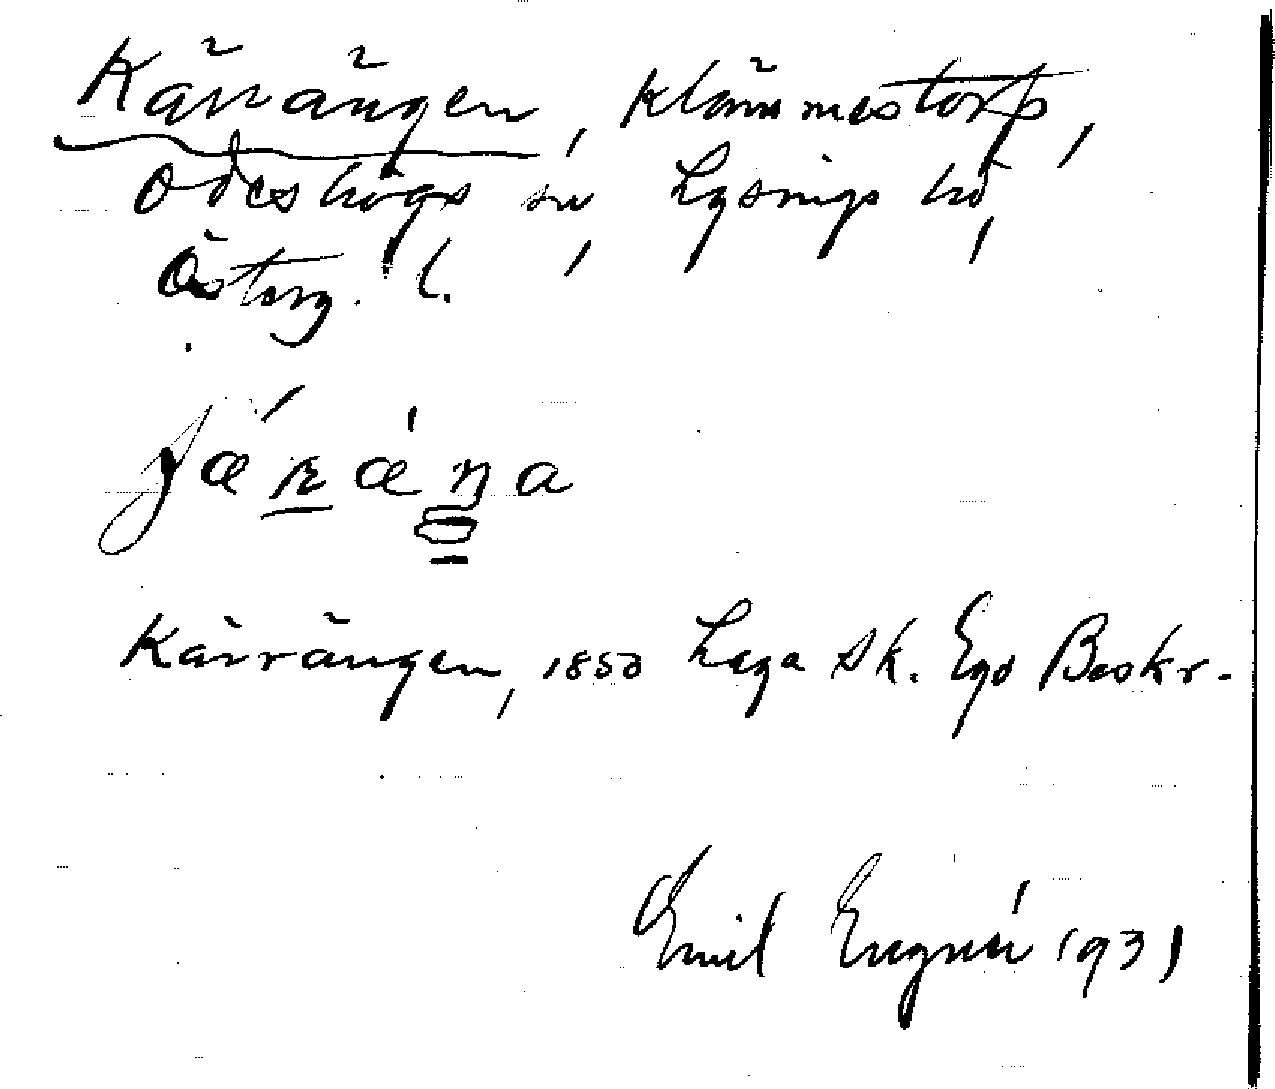 Kärrängen, Klämmestorp,
Ödeshögs sn, Lysings hd,
Österg. l.
Kärrängen, 1850 Laga Sk. Ego Beskr.
Emil Engnér 1931